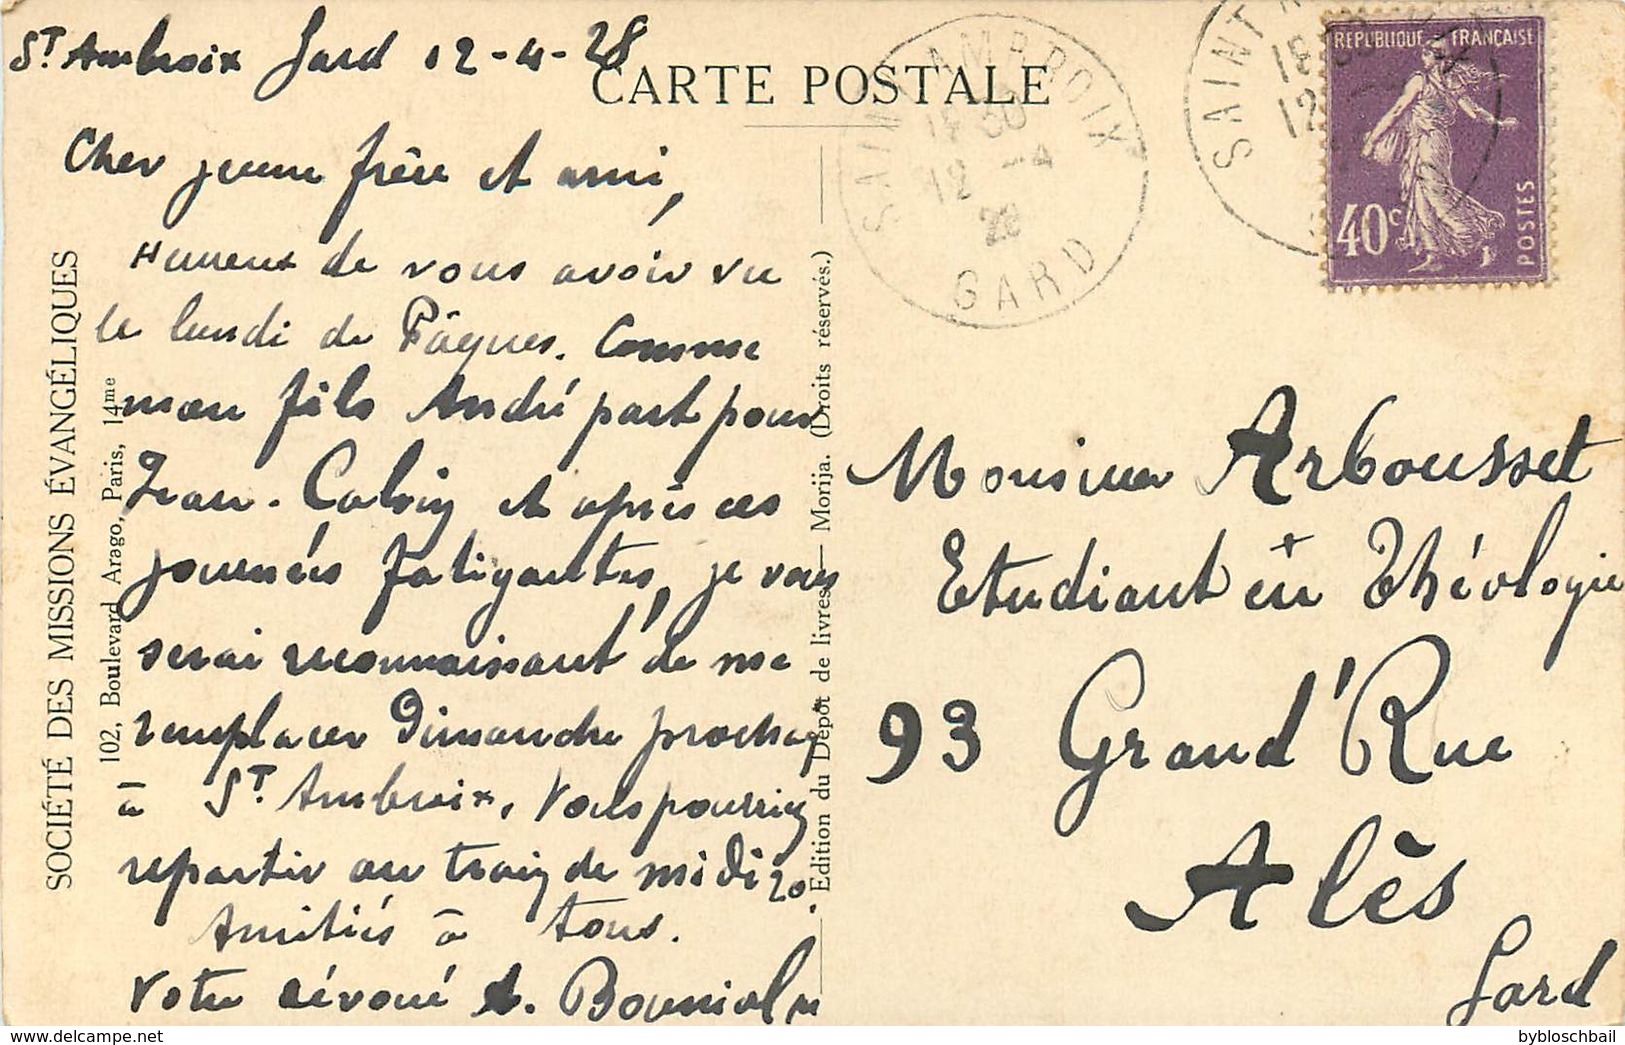 St Ambroix Gard 12-4-28
CARTE POSTALE
Cher jeune frère et ami,
Heureux de vous avoir vu
le lundi de Pâques. Comme
mon fils André part pour
Jean-Calvin et après ces
journées fatigantes, je vous
serai reconnaissant de me
remplacer Dimanche prochain
à St. Ambroix. Vous pourriez
repartir au train de midi 20.
Amitiés à tous.
Votre dévoué A. Bouniol
SOCIÉTÉ DES MISSIONS ÉVANGÉLIQUES
102, Boulevard Arago, Paris, 14me
Edition du Dépôt de livres — Morija. (Droits réservés.)
SAINT AMBROIX
18 30
12 -4
28
GARD
SAINT
18 30
12
REPUBLIQUE FRANÇAISE
40c
POSTES
Monsieur Arbousset
Etudiant en Théologie
93 Grand'Rue
Alès
Gard
bybloschbail